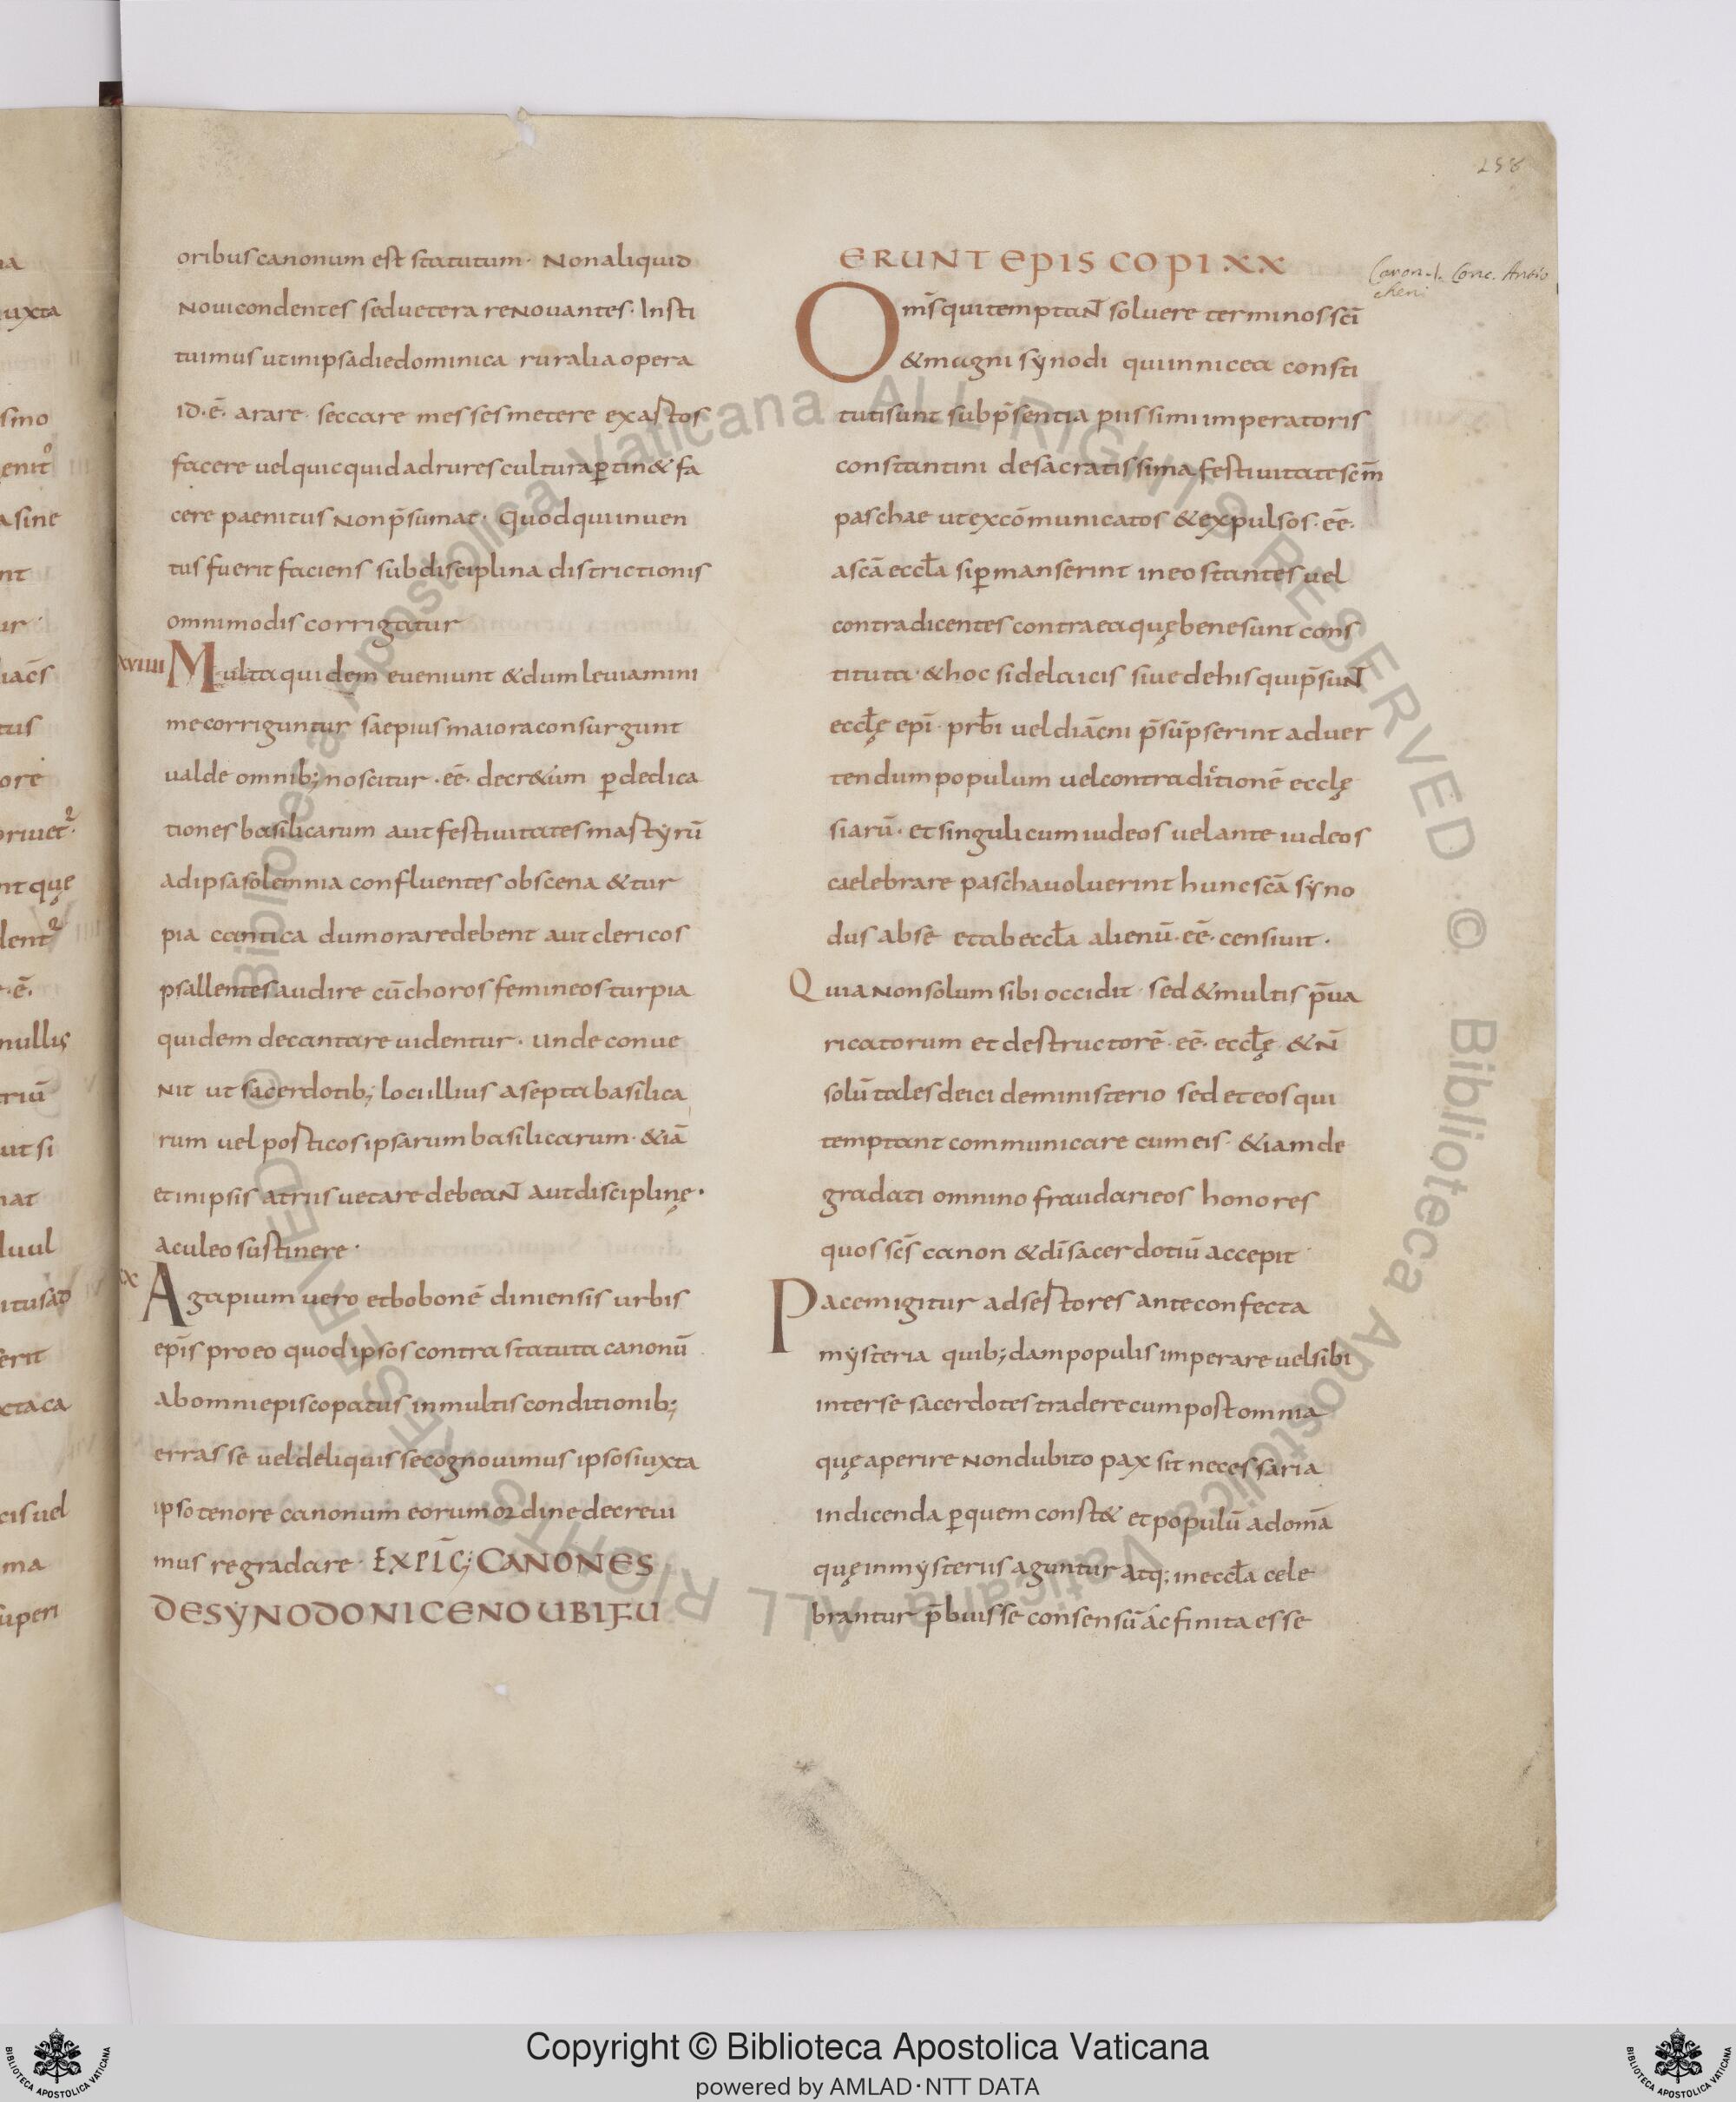 oribus canonum est statutum · Non aliquid
Noui condentes sed uetera reNouantes · Insti
tuimus ut in ipsa die dominica ruralia opera
id · ē · arare · seccare messes metere exastos
facere uel quicquid ad rures cultura ꝑtin& fa
cere paenitus Non p̄sumat · Quod qui inuen
tus fuerit faciens sub disciplina districtionis
omnimodis corrigatur
xviiii Multa quidem eueniunt & dum leuia mini
me corriguntur saepius maiora consurgunt
ualde omnib; noscitur · eē · decr&um ꝑ dedica
tiones basilicarum aut festiuitates mastyrū
ad ipsa solemnia confluentes obscena & tur
pia cantica dum orare debent aut clericos
psallentes audire cū choros femineos turpia
quidem decantare uidentur · unde conue
Nit ut sacerdotib; loci illius a septa basilica
rum uel posticos ipsarum basilicarum · &iā
et in ipsis atriis uetare debeaNT aut disciplinę ·
aculeo sustinere ·
xx Agapium uero et bobonē diniensis urbis
ep̄is pro eo quod ipsos contra statuta canonū
ab omni episcopatus in multis conditionib;
errasse uel deliquisse cognouimus ipsos iuxta
ipso tenore canonum eorum ordine decreui
mus regradare · EXPLIC̄; CANONES
DE SYNODO NICENO UBI FU
258
ERUNT EPISCOPI · XX
Canon. 1. Conc. Antio
cheni
Om̄s qui temptaNT soluere terminos sc̄i
& magni synodi qui in nicea consti
tuti sunt sub p̄sentia piissimi imperatoris
constantini de sacratissima festiuitate scm̄
paschae ut excōmunicatos & expulsos · eē ·
a scā eccła si ꝑmanserint in eo stantes uel
contradicentes contra ea quę bene sunt cons
tituta · & hoc si de laicis siue de his qui p̄suNT
eccłę ep̄i · prb̄i uel diāc̄ni p̄sūpserint aduer
tendum populum uel contraditionē ecclę
siarū · et singuli cum iudeos uel ante iudeos
caelebrare pascha uoluerint hunc scā syno
dus ab se et ab eccła alienū · eē · censiuit ·
Quia Non solum sibi occidit · sed & multis p̄ua
ricatorum et destructorē · eē · eccłę & N̄
solū tales deici de ministerio sed et eos qui
temptant communicare cum eis · &iam de
gradati omnino fraudari eos honores
quos sc̄s canon & dī sacerdotiū accepit ·
Pacem igitur adsestores ante confecta
mysteria quib;dam populis imperare uel sibi
inter se sacerdotes tradere cum post omnia
quę aperire Non dubito pax sit necessaria
indicenda ꝑ quem const& et populū ad om̄a
quę in mysteriis aguntur atq; in eccła cele
brantur p̄buisse consensū ac finita esse
Copyright © Biblioteca Apostolica Vaticana
powered by AMLAD·NTT DATA